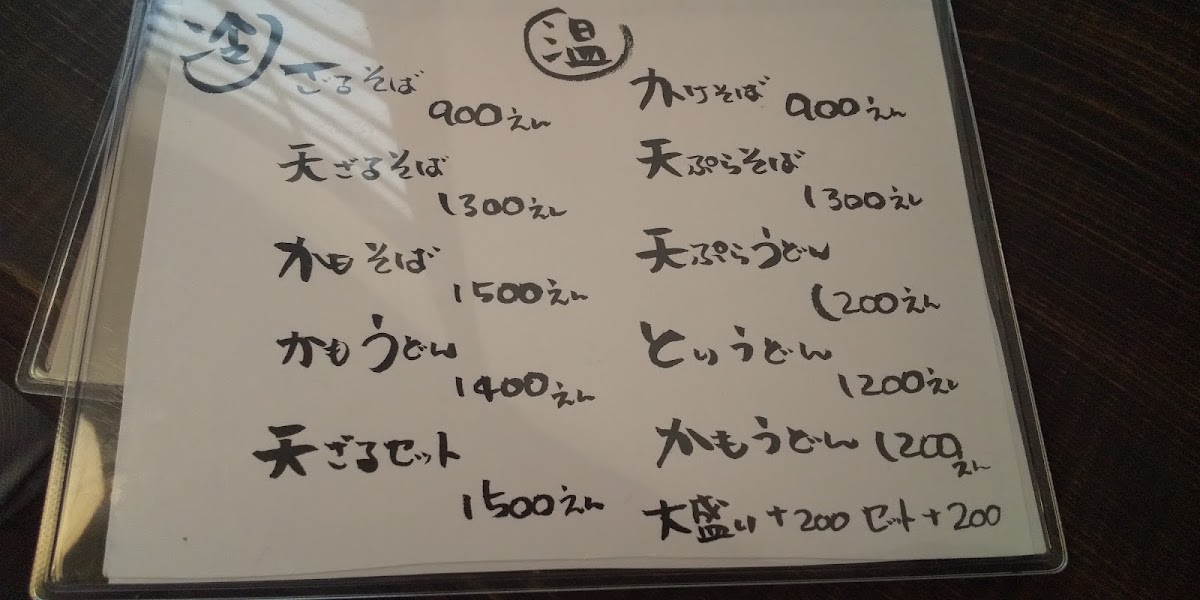 冷
ざるそば
900えん
天ざるそば
1300えん
かもそば
1500えん
かもうどん
1400えん
天ざるセット
1500えん
温
かけそば 900えん
天ぷらそば
1300えん
天ぷらうどん
1200えん
とりうどん
1200えん
かもうどん 1200えん
大盛り+200 セット+200